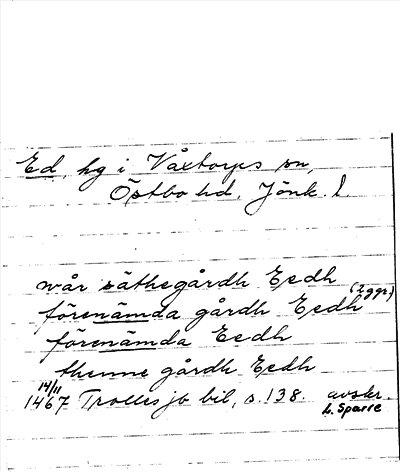 Ed, hg i Våxtorps sn,
Östbo hd, Jönk. l.
wår säthegårdh Eedh
förenämda gårdh Eedh (2 ggr)
förenämda Eedh
thenne gårdh Eedh
14/11 1467 Trolles jb bil, s. 138. avskr.
L. Sparre